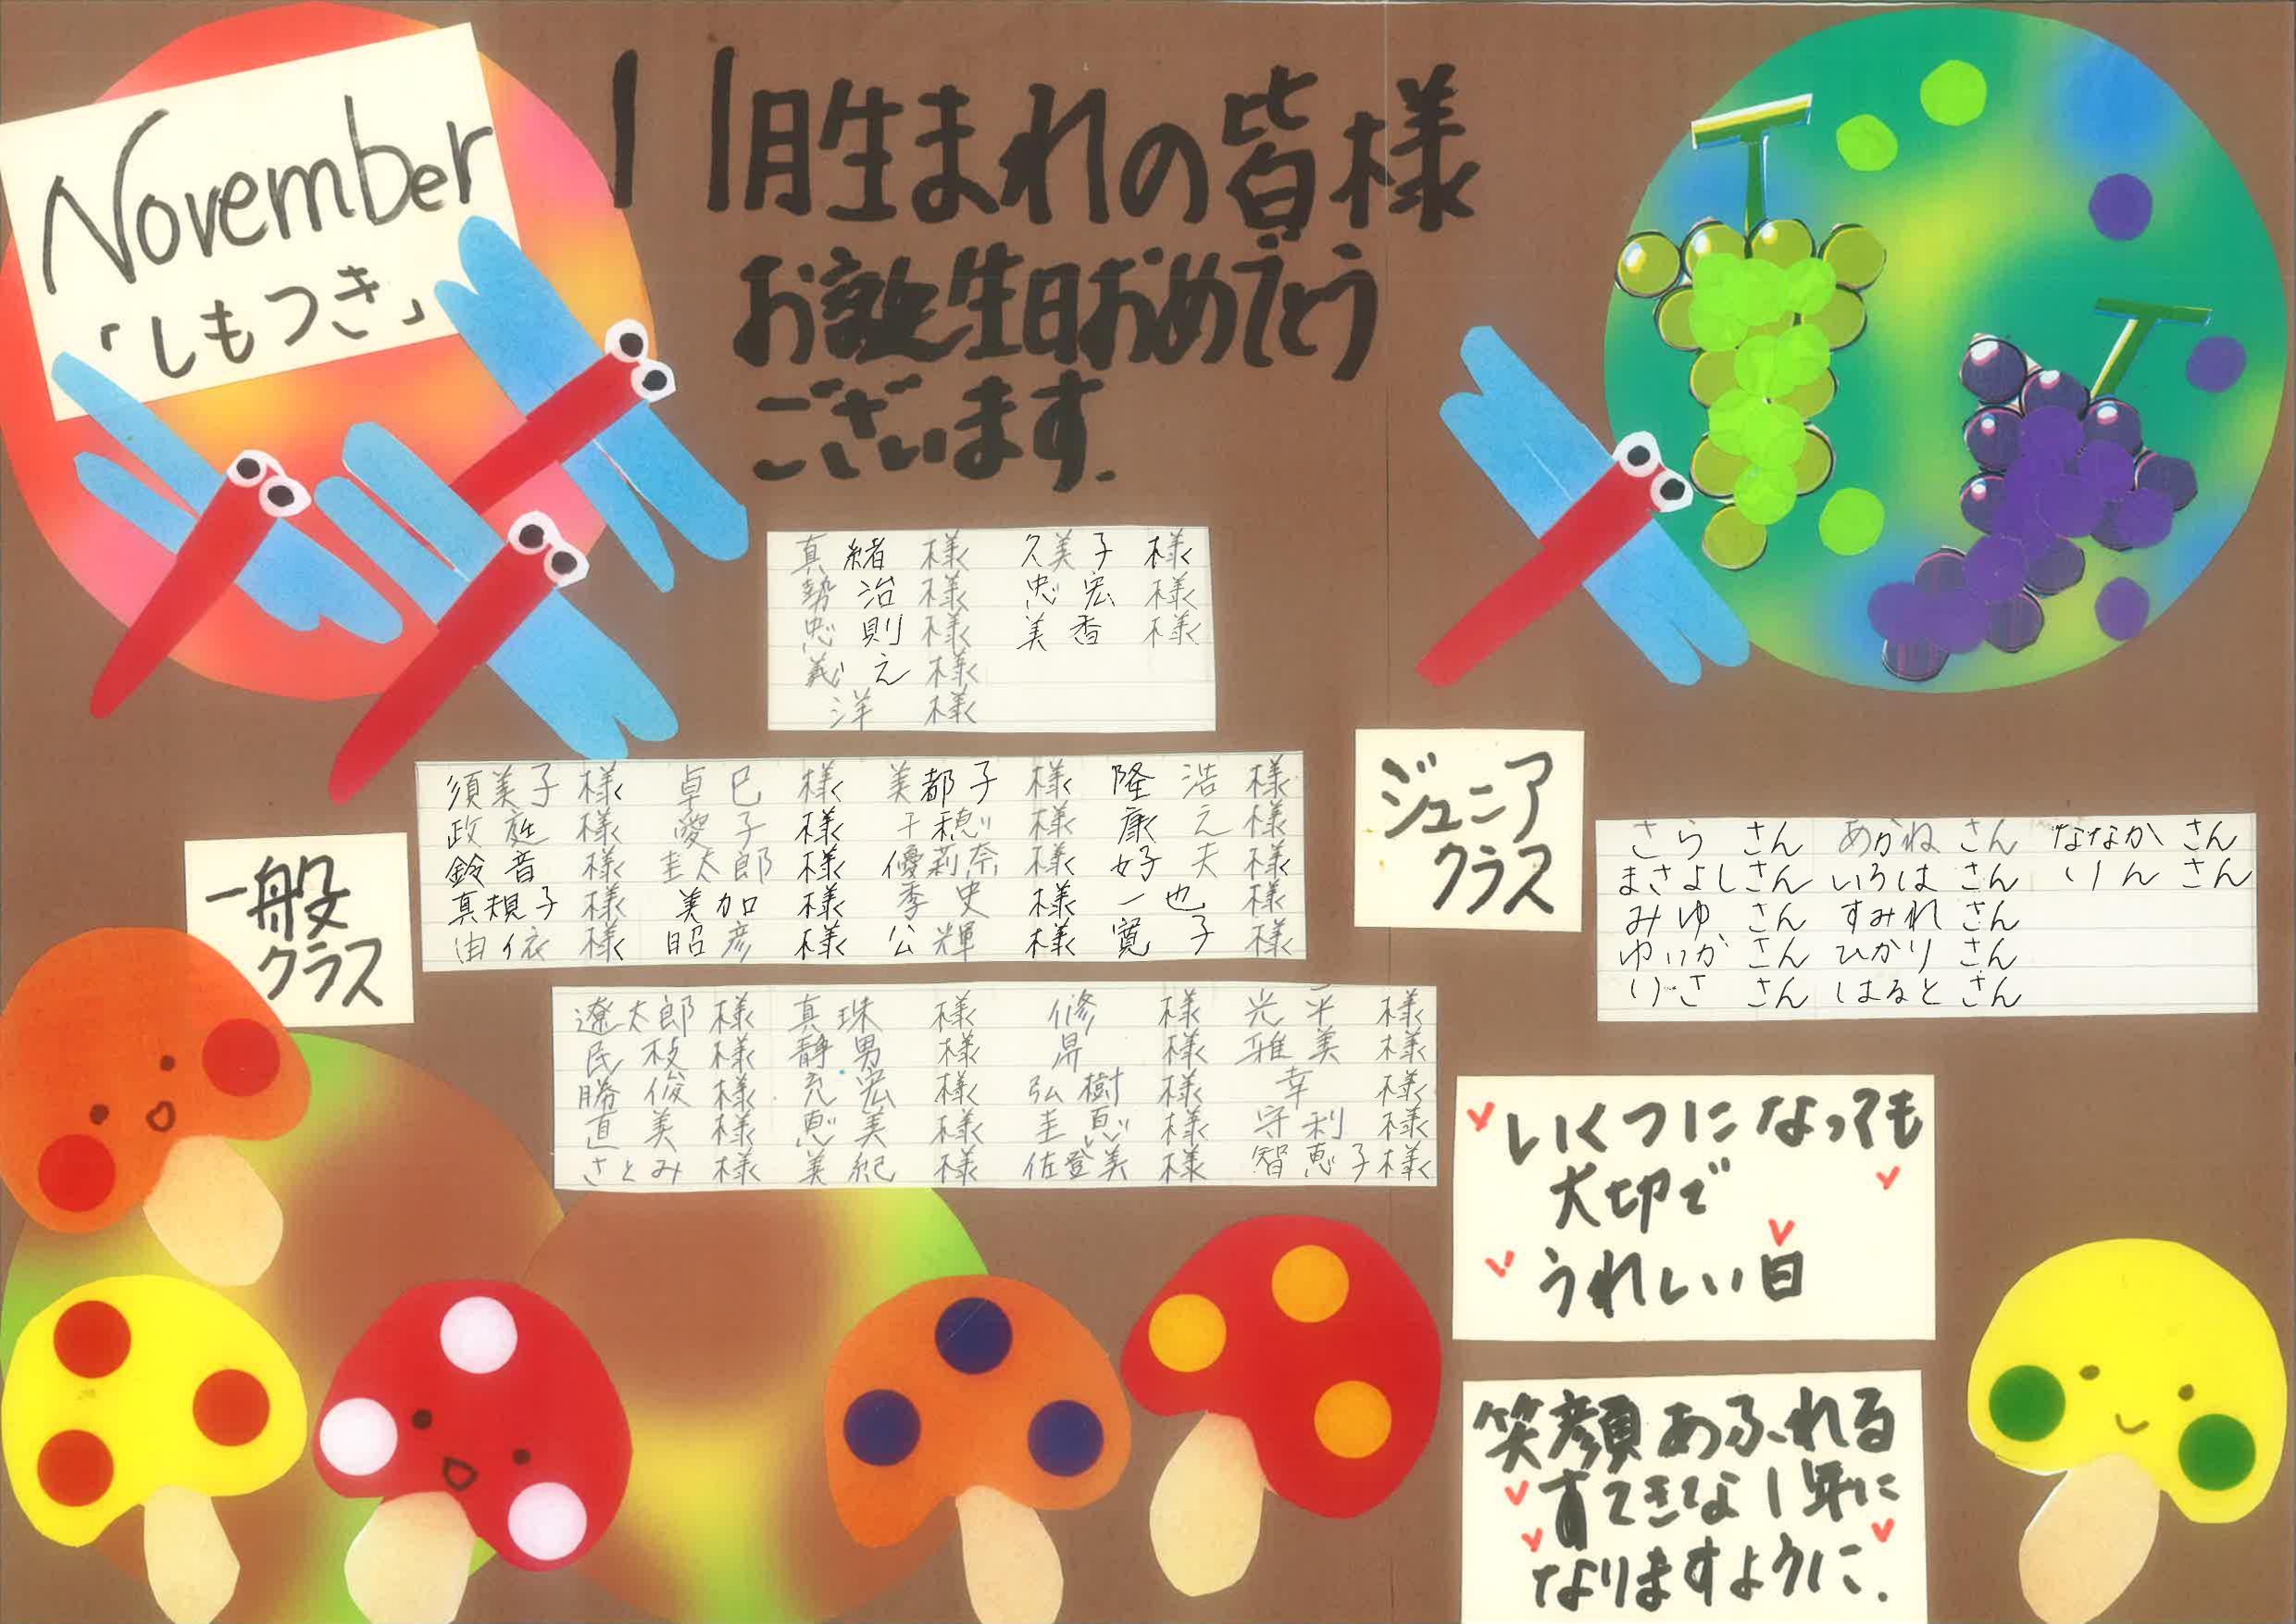 November
「しもつき」
11月生まれの皆様
お誕生日おめでとう
ございます.
真緒 様 久美子 様
勢治 様 忠宏 様
忠則 様 美香 様
義え 様
洋 様
一般
クラス
須美子 様 卓巳 様 美都子 様 隆浩 様
政庭 様 愛子 様 千穂 様 康え 様
鈴音 様 圭太郎 様 優莉奈 様 好夫 様
真規子 様 美加 様 季史 様 一也 様
由依 様 昭彦 様 公輝 様 寛子 様
遼太郎 様 真珠 様 修 様 光平 様
民枝 様 静男 様 昇 様 雅美 様
勝俊 様 充宏 様 弘樹 様 幸 様
直美 様 恵美 様 圭恵 様 守利 様
さとみ 様 美紀 様 佐登美 様 智恵子 様
ジュニア
クラス
さら さん あかね さん ななか さん
まさよし さん いろは さん りん さん
みゆ さん すみれ さん
ゆいか さん ひかり さん
りさ さん はると さん
いくつになっても
大切で
うれしい日
笑顔あふれる
すてきな1年に
なりますように.